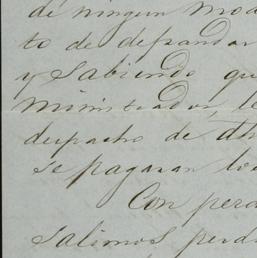 de ningun mod
to de defraudar
y sabiendo qu
ministrador, le
despacho de
se pagaran los
Con perd
salimos perd